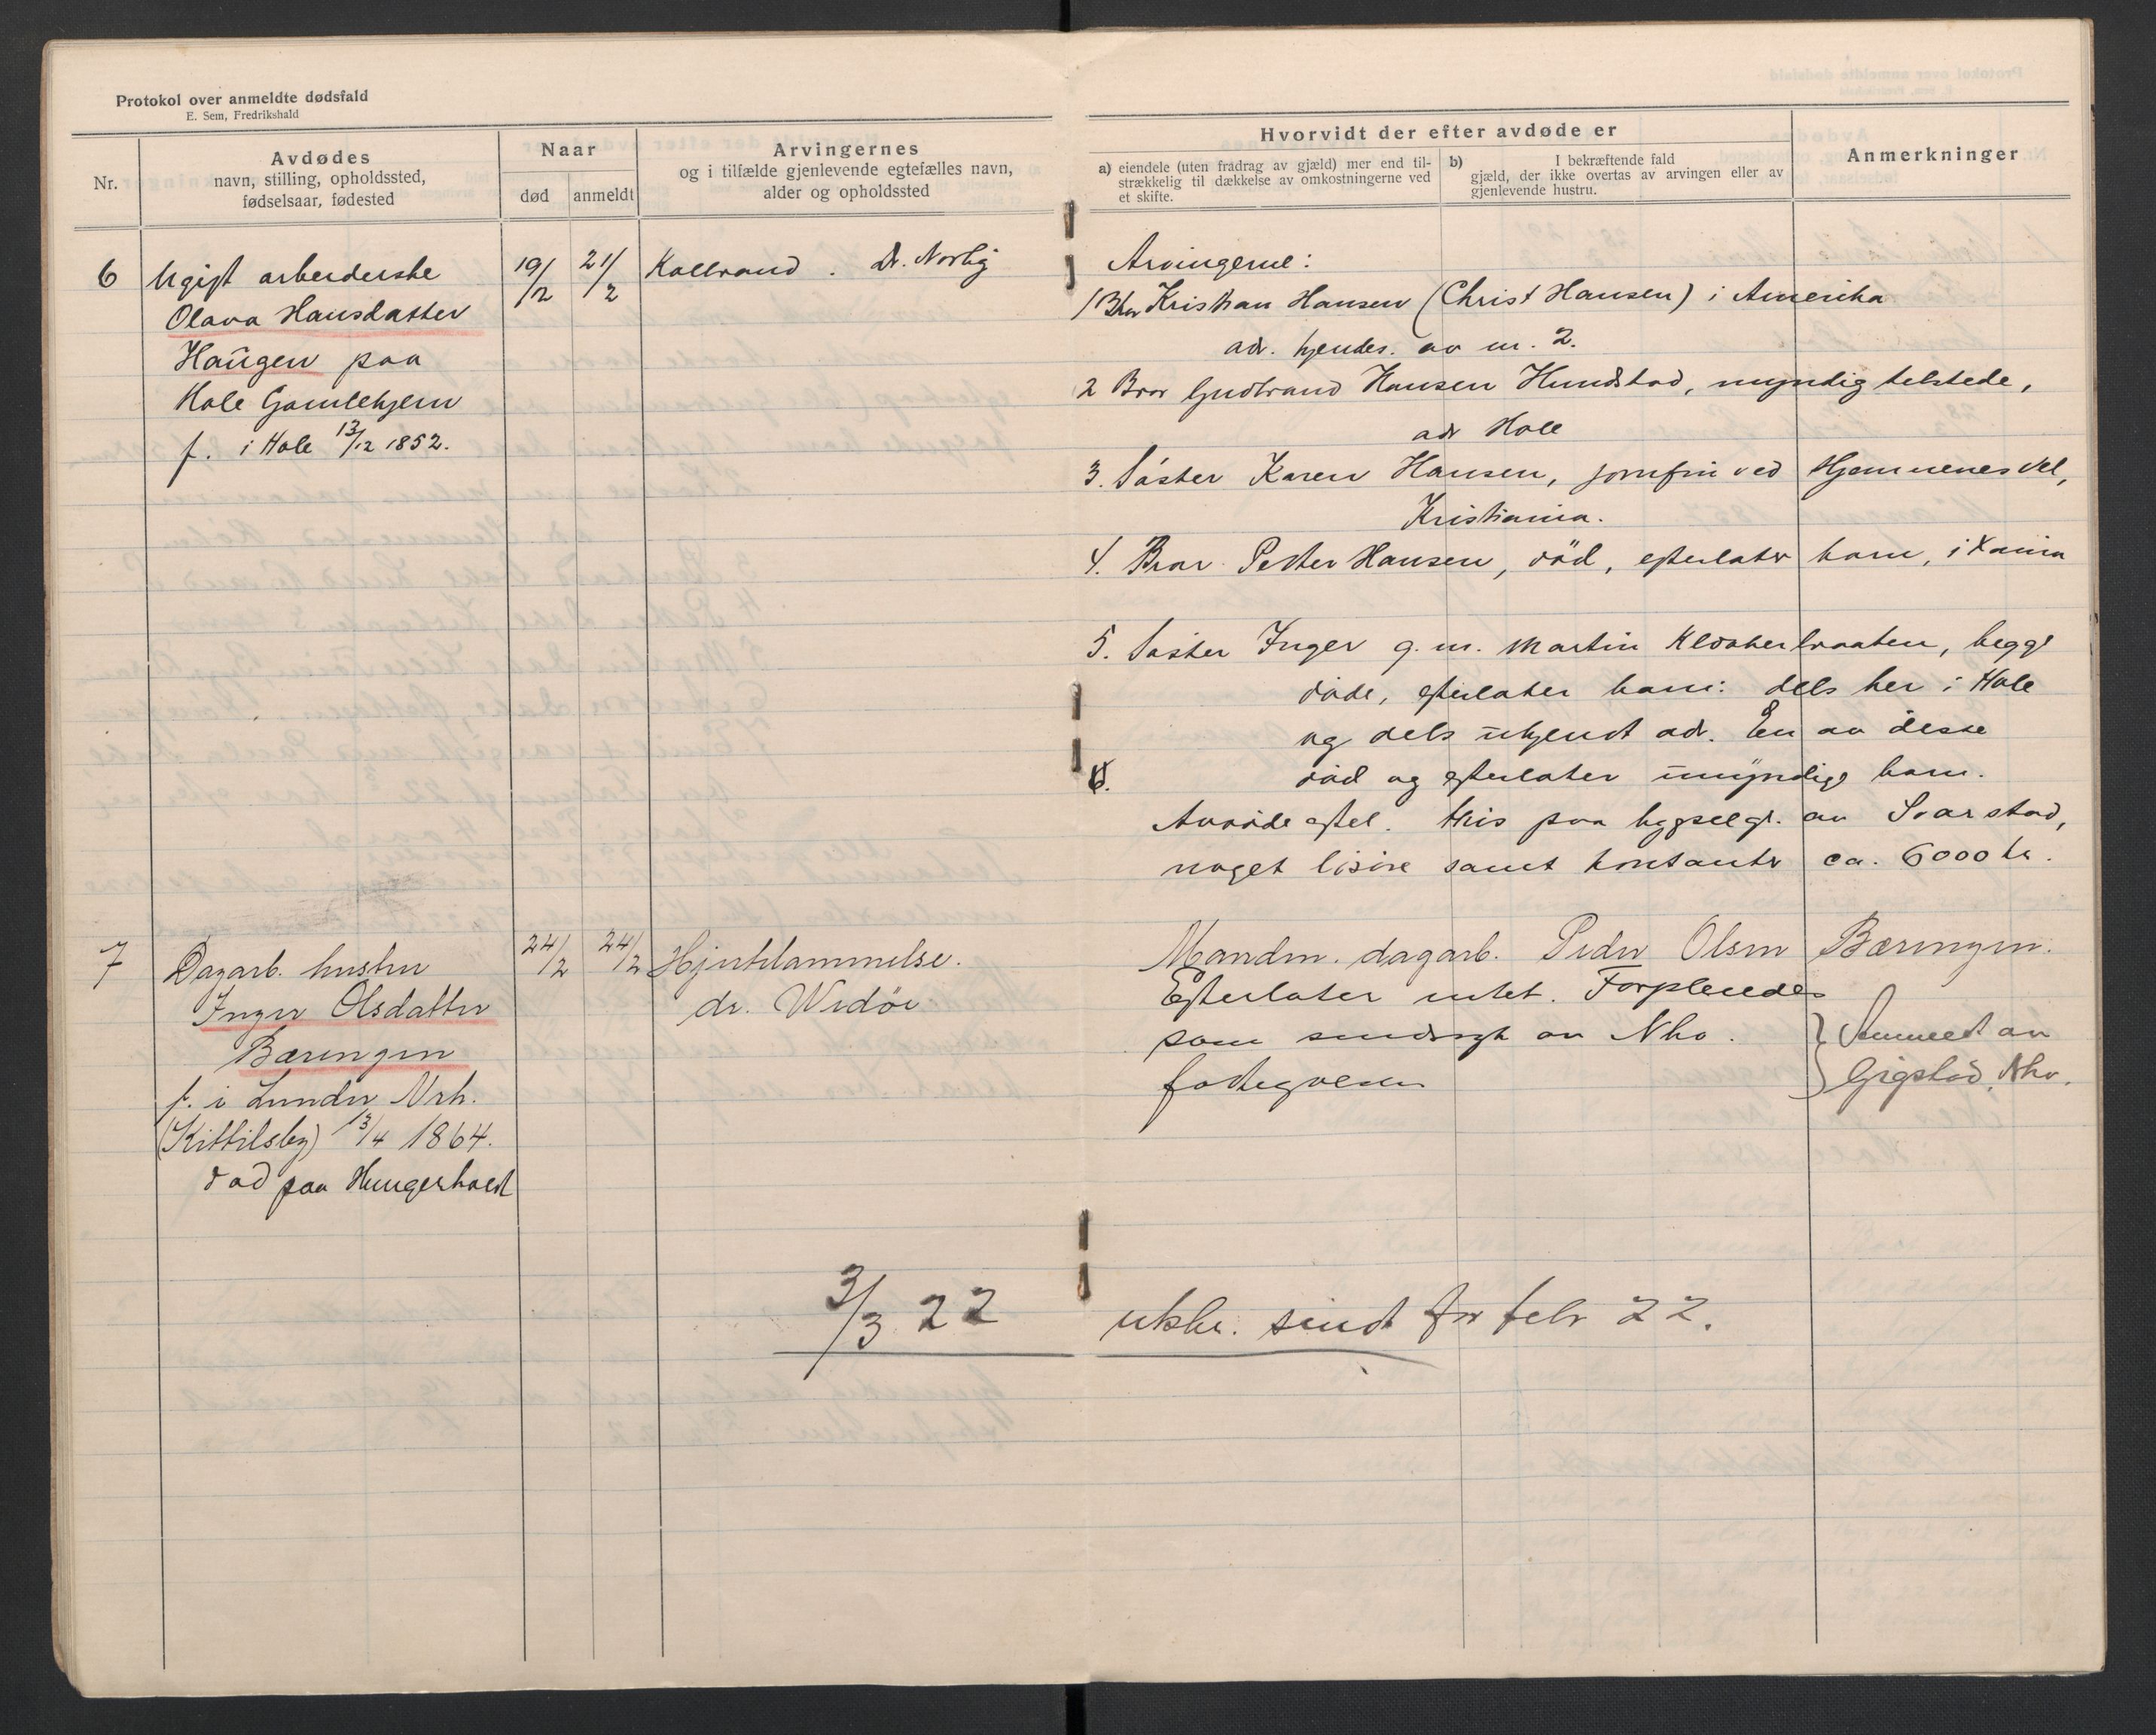 Protokol over anmeldte dødsfald
E. Sem, Fredrikshald
Nr.
Avdødes
navn, stilling, opholdssted,
fødselsaar, fødested
Naar
død
anmeldt
Arvingernes
og i tilfælde gjenlevende egtefælles navn,
alder og opholdssted
Hvorvidt der efter avdøde er
a) eiendele (uten fradrag av gjæld) mer end til-
strækkelig til dækkelse av omkostningerne ved
et skifte.
b) I bekræftende fald
gjæld, der ikke overtas av arvingen eller av
gjenlevende hustru.
Anmerkninger
6
Ugift arbeiderske
Olava Hansdatter
Haugen paa
Hole Gamlehjem
f. i Hole 13/12 1852.
19/2
21/2
Kolbrand. Dr. Norlig
Arvingerne:
1 Bror Kristian Hansen (Christ Hansen) i Amerika
adr. kjendes. av nr. 2.
2 Bror Gudbrand Hansen Hundstad, myndig tilstede,
adr Hole
3. Søster Karen Hansen, jomfru ved Hjemmenes Vel,
Kristiania.
4. Bror Petter Hansen, død, efterlater barn, i Kania
5. Søster Inger g. m. Martin Kloxherbraaten, begge
døde, efterlater barn: dels her i Hole
og dels ukjendt adr. En av disse
død og efterlater umyndige barn.
6.
Avdøde eftel. Hus paa bygselgr. av Svarstad,
noget løsøre samt kontanter ca. 6000 kr.
7
Dagarb. hustru
Inger Olsdatter
Bæringen
f. i Lunder Nrh.
(Kittilsby) 13/4 1864.
død paa Hungerholt
24/2
24/2
Hjertelammelse.
dr. Widöe
Manden. dagarb. Peder Olsen Bæringen.
Efterlater intet. Forpleiedes
som sindssyk av Nho.
fattigvesen
Anmeldt av
Gigstad, Nho.
3/3 22 utskr. sendt for febr 22.